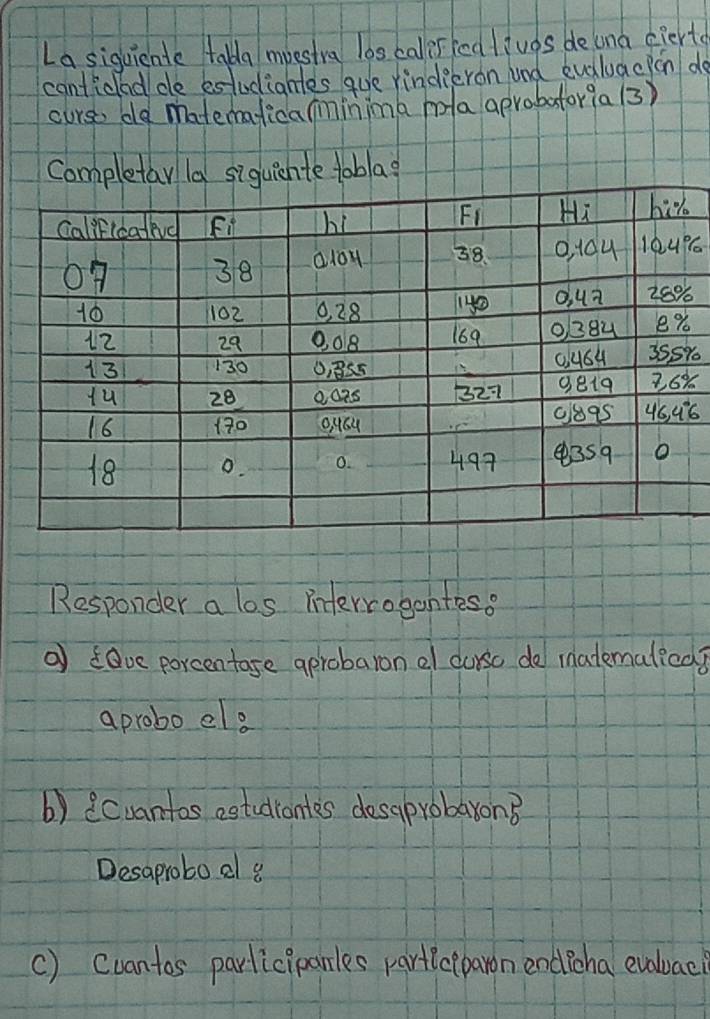 La siguiente tabla muestra los calificativos de una cierta
cantidad de estudiantes que rindieron una evaluación de
curso de matematica (minima nota aprobatoria 13)
Completar la siguiente tabla:
Calificativo Fi hi Fi Hi hi%
07 38 0,104 38. 0,104 10,4%
10 102 0,28 140 0,47 28%
12 29 0,08 169 0,384 8%
13 130 0,355 0,464 35,5%
14 28 0,025 327 0,819 7,6%
16 170 0,464 ... 0,895 46,4%
18 0. 0. 497 359 0
Responder a las interrogantes:
a) ¿Que porcentaje aprobaron el curso de matematica?
aprobo el:
b) ¿Cuantos estudiantes desaprobaron?
Desaprobo el:
c) Cuantos participantes participaron en dicha evaluaci